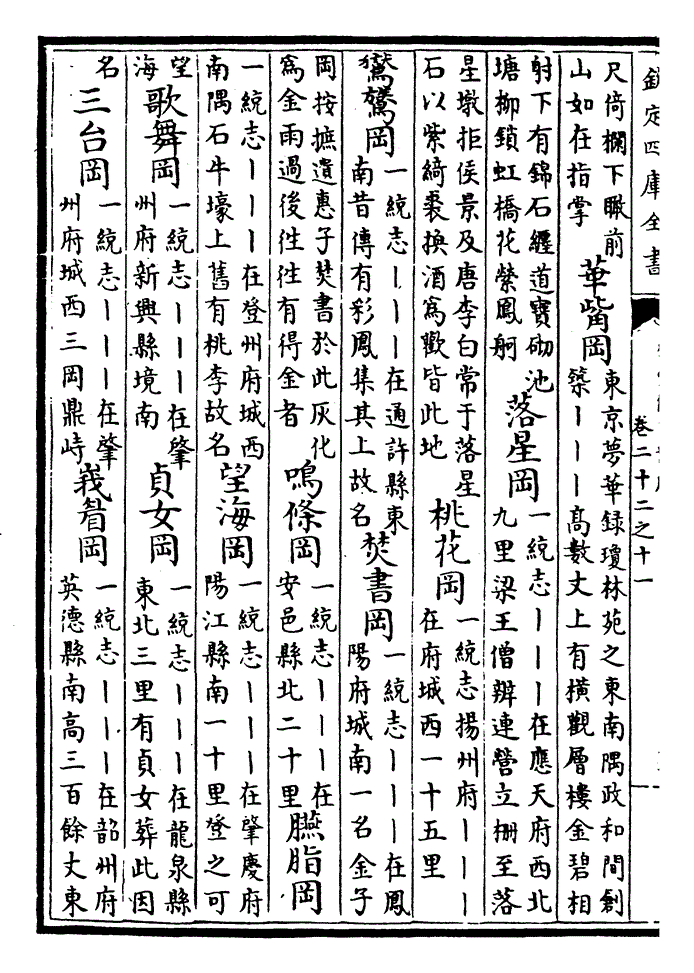 欽定四庫全書
卷二十二之十一
尺倚欄下瞰前
山如在指掌
華觜岡
東京夢華録瓊林苑之東南隅政和間創
築｜｜｜髙數丈上有横觀層樓金碧相
射下有錦石纒道寶砌池
塘柳鎖虹橋花縈鳳舸
落星岡
一統志｜｜｜在應天府西北
九里梁王僧辯連營立柵至落
星墩拒侯景及唐李白常于落星
石以紫綺裘換酒為歡皆此地
桃花岡
一統志揚州府｜｜｜
在府城西一十五里
鸑鷟岡
一統志｜｜｜在通許縣東
南昔傳有彩鳳集其上故名
焚書岡
一統志｜｜｜在鳳
陽府城南一名金子
岡按摭遺惠子焚書於此灰化
為金雨過後往往有得金者
鳴條岡
一統志｜｜｜在
安邑縣北二十里
臙脂岡
一統志｜｜｜在登州府城西
南隅石牛壕上舊有桃李故名
望海岡
一統志｜｜｜在肇慶府
陽江縣南一十里登之可
望
海
歌舞岡
一統志｜｜｜在肇
州府新興縣境南
貞女岡
一統志｜｜｜在龍泉縣
東北三里有貞女葬此因
名
三台岡
一統志｜｜｜在肇
州府城西三岡鼎峙
峩睂岡
一統志｜｜｜在韶州府
英德縣南高三百餘丈東